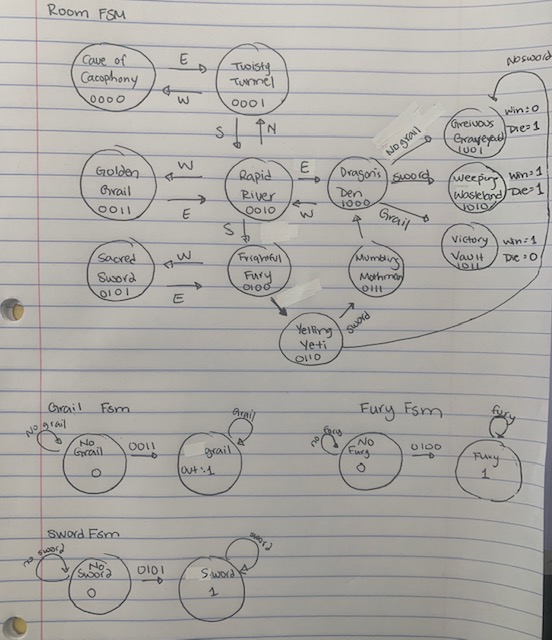 Room FSM
Cave of
Cacophony
0000
E
W
Twisty
Tunnel
0001
No sword
S
N
Golden
Grail
0011
W
E
Rapid
River
0010
E
W
Dragon's
Den
1000
No grail
sword
Grail
Greivous
Graveyard
1001
Win:0
Die=1
Weeping
Wasteland
1010
Win=1
Die=1
Victory
Vault
1011
Win=1
Die=0
S
Sacred
Sword
0101
W
E
Frightful
Fury
0100
Mumbling
Mothman
0111
Yelling
Yeti
0110
sword
Grail Fsm
No grail
No
Grail
0
0011
grail
out:1
Grail
Fury Fsm
no fury
No
Fury
0
0100
Fury
1
fury
Sword Fsm
no sword
No
Sword
0
0101
Sword
1
sword